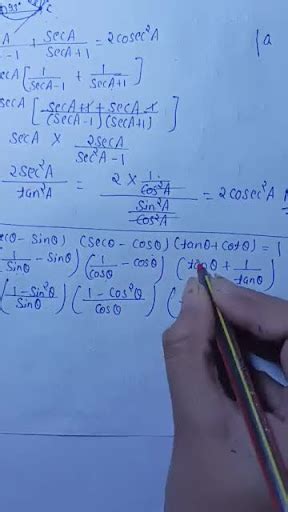 A/-1 + secA/secA+1 = 2cosec²A
ecA [1/secA-1 + 1/secA+1]
secA [secA+1 + secA-1/(secA-1)(secA+1)]
secA × 2secA/sec²A-1
2sec²A/tan²A = 2 × 1/cos²A / sin²A/cos²A = 2cosec²A
secθ - sinθ) (secθ - cosθ) (tanθ + cotθ) = 1
1/sinθ - sinθ) (1/cosθ - cosθ) (tanθ + 1/tanθ)
(1-sin²θ/sinθ) (1-cos²θ/cosθ) (